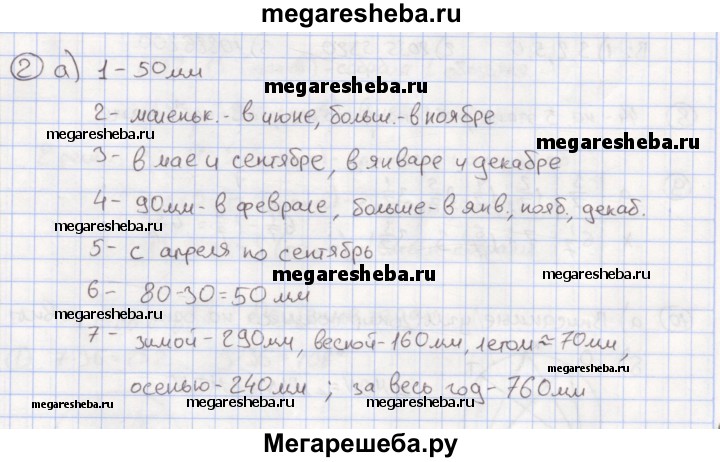 megaresheba.ru
2 а) 1 - 50мм
megaresheba.ru
2 - маленьк. - в июне, больш. - в ноябре
megaresheba.ru
megaresheba.ru
3 - в мае и сентябре, в январе и декабре
4 - 90мм - в феврале, больше - в янв., нояб., декаб.
megaresheba.ru
5 - с апреля по сентябрь
megaresheba.ru
megaresheba.ru
6 - 80-30=50 мм
megaresheba.ru
7 - зимой - 290мм, весной - 160мм, летом ≈ 70мм,
megaresheba.ru
осенью - 240мм ; за весь год - 760мм
megaresheba.ru
megaresheba.ru
megaresheba.ru
Мегарешеба.ру